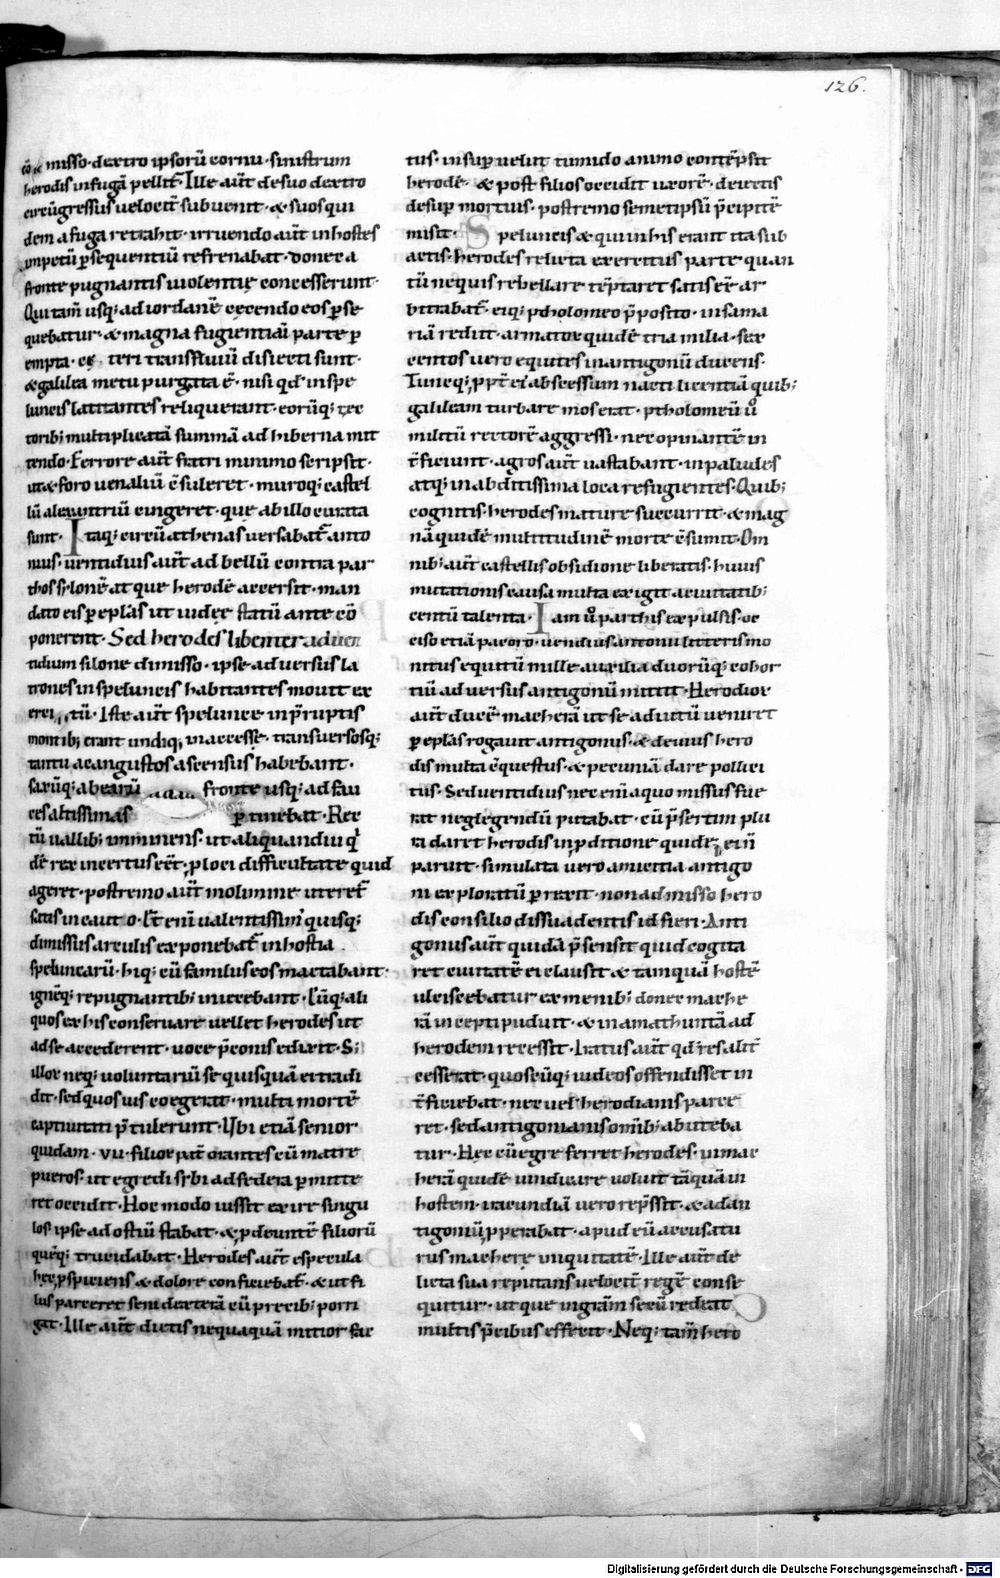 126.
misso· dextro ipsorū cornu· sinistrum
herodis in fugā pellit̄· Ille aūt de suo dextro
circūgressus uelocit̄ subuenit· & suos qui
dem a fuga retrahit· irruendo aūt in hostes
impetū p̄sequentiū refrenabat· donec a
fronte pugnantis uiolentię concesserunt·
Qui tam̄ usq; ad iordanē cędendo eos p̄se
quebatur· & magna fugientiū parte p̄
empta· cę teri trans fluuiū disiecti sunt·
& galilea metu purgata ē· nisi qd' in spe
luncis latitantes reliquerant· eorūq; rec
torib; multiplicatā summā ad hiberna mit
tendo· Ferrore aūt fratri minimo scripsit·
ut & foro uenaliū c̄suleret· muroq; castel
lū alexandriū cingeret· que ab illo curata
sunt· Itaq; circū athenas uersabat̄ anto
nius· uentidius aūt ad bellū contra par
thos silonē atque herodē accersit· man
dato eis p̄ ep̄las ut iudęę statū ante cō
ponerent· Sed herodes libenter aduen
tidium silone dimisso· ipse aduersus la
trones in speluncis habitantes mouit ex
erci tū· Iste aūt spelunce in p̄ruptis
montib; erant undiq; inaccesse· transuersosq;
tantū ac angustos ascensus habebant·
saxūq; ab earū fronte usq; ad fau
ces altissimas p̄tinebat· Rec
tū uallib; imminens· ut aliquandiu q̄
dē rex incertus eēt· p̄ loci difficultate quid
ageret· postremo aūt molimine uteret̄
satis incaut o· Et enī ualentissim' quisq;
dimissus arculis exponebat̄ in hostia
speluncarū· hiq; eū familiis eos mactabant·
ignēq; repugnantib; iniciebant· Cūq; ali
quos ex his conseruare uellet herodes ut
ad se accederent· uoce p̄conis edixit· S;
illor neq; uoluntariū se quisquā ei tradi
dit· sed quos uis coegerat· multi mortē
captiuitati p̄tulerunt· Ubi etiā senior
quidam· VII· filior pat̄ orantes eū matre
pueros· ut egredi sibi ad federa p̄mitte
ret occidit· Hoc modo iussit exire singu
los· ipse ad ostiū stabat· & p̄deuntē filiorū
quēq; trucidabat· Herodes aūt e specula
hęc p̄spiciens & dolore conficiebat̄· & ut fi
liis parceret seni dexterā cū precib; porri
git· Ille aūt dictis nequaquā mitior fac
tus· insup̄ uelut tumido animo contēpsit
herodē· & post filios occidit uxorē· deiectis
desup̄ mortuis· postremo semetipsū p̄cipitē
misit· Speluncis & qui in his erant ita sub
actis· herodes relicta exercitus parte quan
tū nequis rebellare tēptaret satis eē ar
bitrabat̄· eiq; ptholomeo p̄posito· in sama
riā rediit· armator quidē tria milia· sex
centos uero equites in antigonū ducens·
Tuncq; p̄pt̄ ei' abscessum nacti licentiā quib;
galileam turbare mos erat· ptholomeū u̇
militū rectorē aggressi· nec opinantē in
t̄ficiunt· agros aūt uastabant· in paludes
atq; in abditissima loca refugientes· Quib;
cognitis· herodes mature succurrit· & mag
nā quidē multitudinē morte c̄sumit· Om
nib; aūt castellis obsidione liberatis· huius
mutationis causa multa exigit a ciuitatib;
centū talenta· Iam u̇ parthis expulsis· oc
ciso etiā pacoro· uendius antonii litteris mo
nitus equitū mille auxilia duorūq; cohor
tiū aduersus antigonū mittit· Herodior
aūt ducē macherā ut se adiutū ueniret
p̄ ep̄las rogauit antigonus· & de uiis hero
dis multa c̄questus· & pecuniā dare pollici
tus· Sed uentidius nec enī a quo missus fue
rat neglegendū putabat· cū p̄sertim plu
ra daret herodis in p̄ditione quidē ei ñ
paruit· simulata uero amicitia antigo
ni exploratū p̄rexit· non admisso hero
dis consilio dissuadentis id fieri· Anti
gonus aūt quidā p̄sensit quid cogita
ret ciuitatē ei clausit & tamquā hostē
ulciscebatur ex menib; donec mache
rā incepti puduit· & in amathuntā ad
herodem recessit· Iratus aūt qd' res alit̄
cesserat· quoscūq; iudeos offendisset in
t̄ficiebat· nec uel herodianis parce
ret· sed antigonianis omīb; abuteba
tur· Hęc cū egre ferret herodes· in mac
herā quidē uindicare uoluit tāquā in
hostem· iracundiā uero rep̄ssit· & ad an
tigonū p̄perabat· apud eū accusatu
rus macherę iniquitatē· Ille aūt de
licta sua reputans uelocit̄ regē conse
quitur· utque in gr̄am secū redeat
multis p̄cibus effecit· Neq; tam̄ hero
Digitalisierung gefördert durch die Deutsche Forschungsgemeinschaft - DFG